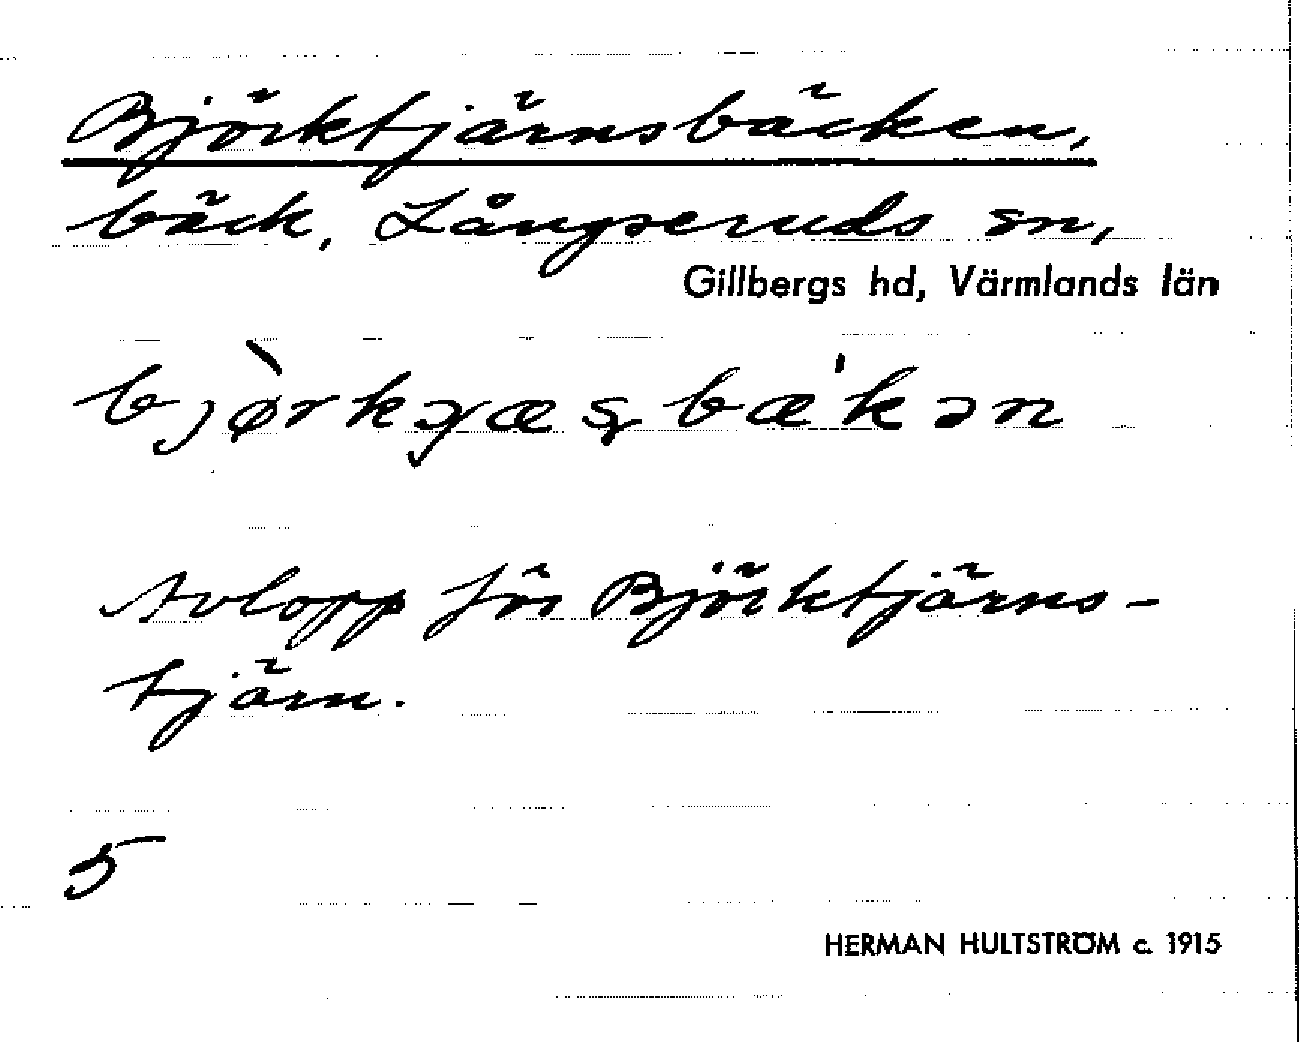 Björktjärnsbäcken,
bäck, Långseruds sn,
Gillbergs hd, Värmlands län
Avlopp för Björktjärns-
tjärn.
5
HERMAN HULTSTRÖM c. 1915